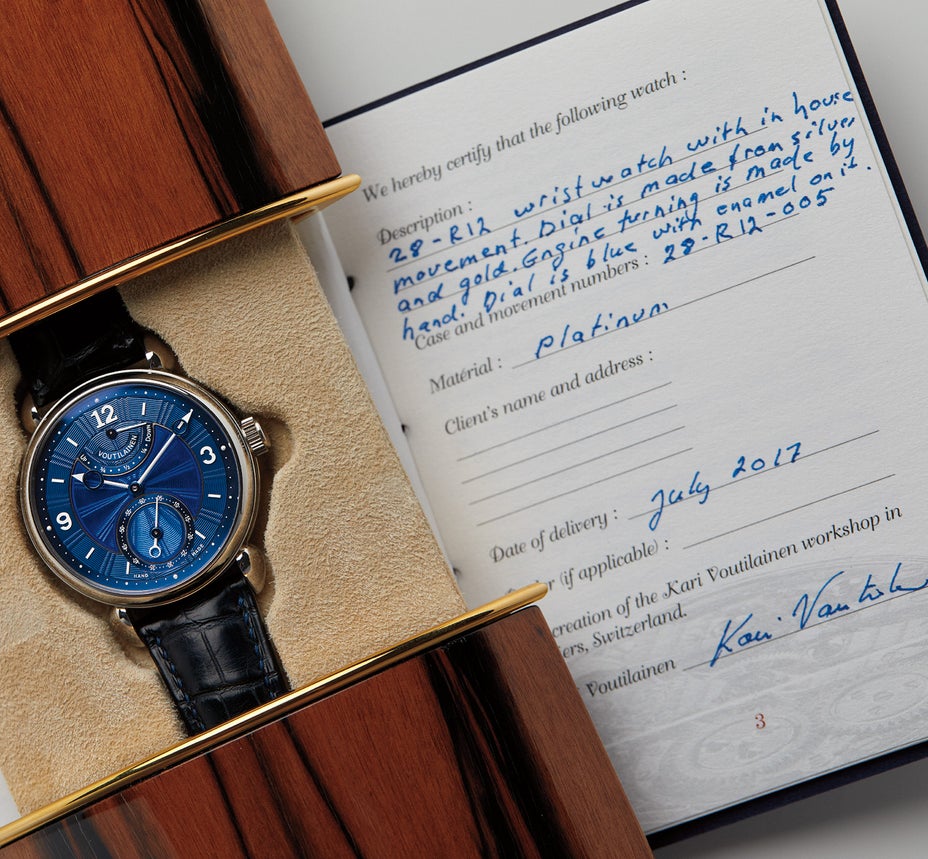 12
1
3
9
UP
DOWN
VOUTILAINEN
HAND
MADE
We hereby certify that the following watch :
Description :
28-R12 wristwatch with in house
movement. Dial is made from silver
and gold. Engine turning is made by
hand. Dial is blue with enamel on it.
Case and movement numbers : 28-R12-005
Matérial : Platinum
Client's name and address :
Date of delivery : July 2017
(if applicable) :
creation of the Kari Voutilainen workshop in
Switzerland.
Voutilainen Kari Voutilainen
3